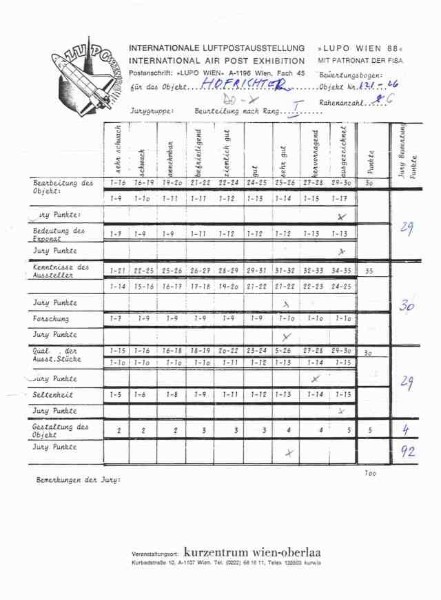 LUPO WIEN
INTERNATIONALE LUFTPOSTAUSSTELLUNG »LUPO WIEN 88«
INTERNATIONAL AIR POST EXHIBITION MIT PATRONAT DER FISA
Postanschrift: »LUPO WIEN« A-1196 Wien, Fach 45 Bewertungsbogen:
für das Objekt HOFRICHTER Objekt Nr.
Jurygruppe: Beurteilung nach Rang I Rahmenanzahl 6
sehr schwach schwach annehmbar befriedigend ziemlich gut gut sehr gut hervorragend ausgezeichnet Punkte Jury Bewertung Punkte
Bearbeitung des Objekt: 1-16 16-19 19-20 21-22 22-24 24-25 25-26 27-28 29-30 30
1-9 1-10 1-11 1-11 1-12 1-13 1-14 1-15 1-17
Jury Punkte: x 29
Bedeutung des Exponat 1-9 1-9 1-9 1-11 1-12 1-12 1-13 1-13 1-13
Jury Punkte x
Kenntnisse des Aussteller 1-21 22-25 25-26 26-27 28-29 29-31 31-32 32-33 34-35 35
1-14 15-16 16-17 17-18 19-20 21-22 21-22 22-23 24-25
Jury Punkte x 30
Forschung 1-7 1-9 1-9 1-9 1-9 1-9 1-10 1-10 1-10
Jury Punkte x
Qual. der Ausst.Stücke 1-15 1-16 16-18 18-19 20-22 23-24 5-26 27-28 29-30 30
1-10 1-10 1-10 1-10 1-11 1-12 1-13 1-14 1-15
Jury Punkte x 29
Seltenheit 1-5 1-6 1-8 1-9 1-11 1-12 1-13 1-14 1-15
Jury Punkte x
Gestaltung des Objekt 2 2 2 3 3 3 4 4 5 5 4
Jury Punkte x 92
Bemerkungen der Jury: 100
Veranstaltungsort: kurzentrum wien-oberlaa
Kurbadstraße 10, A-1107 Wien, Tel. (0222) 68 16 11, Telex